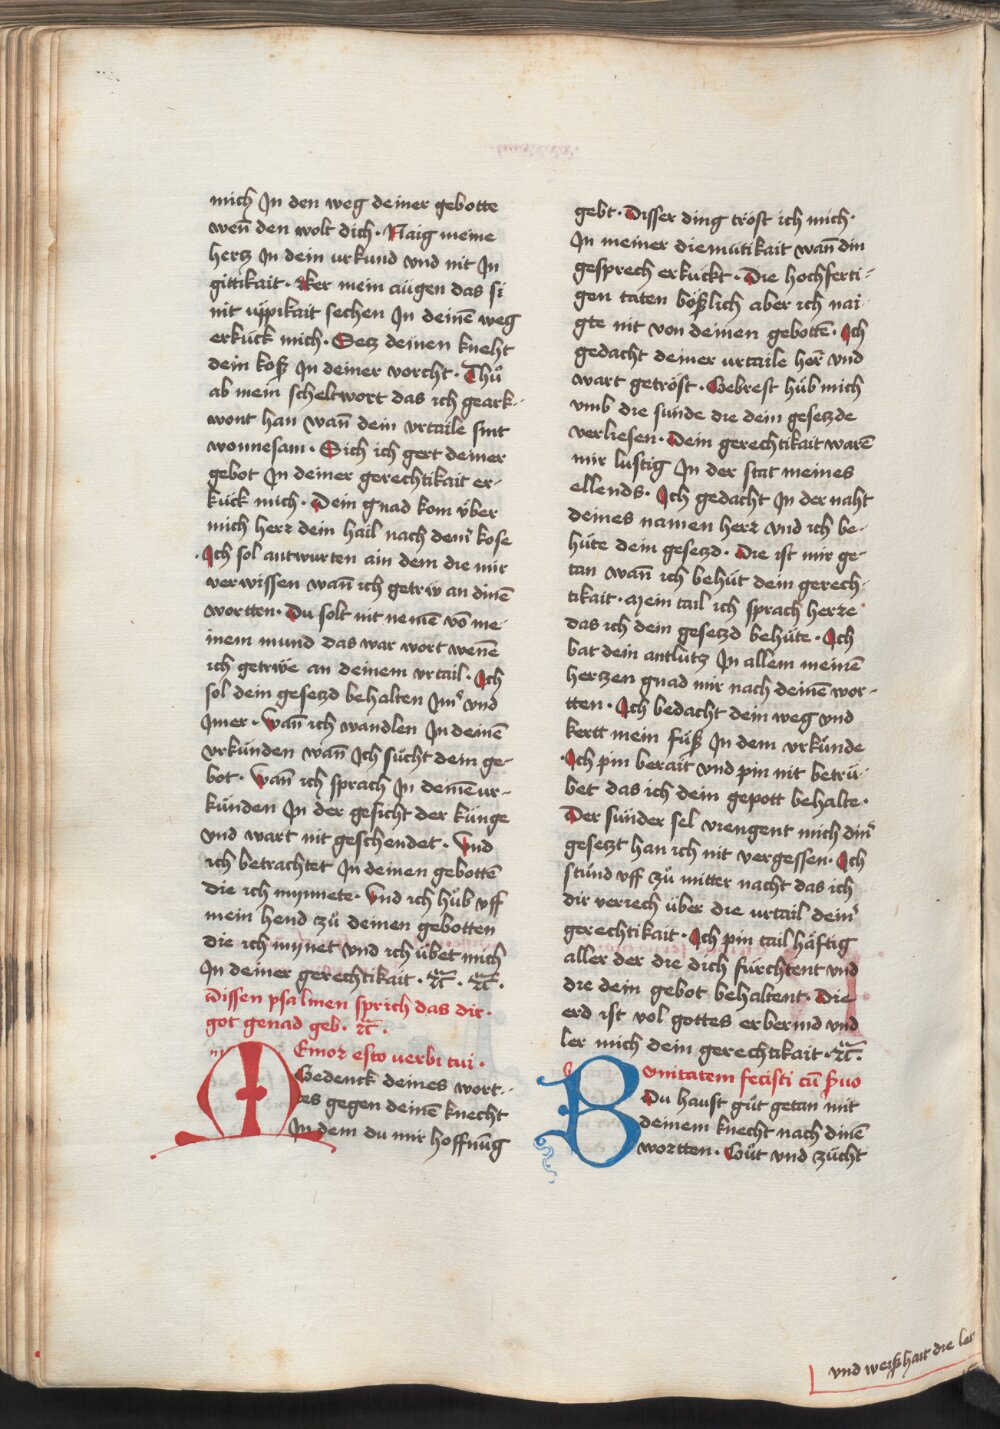 mich Jn den weg deiner gebotte
wen̄ den wolt dich · Naig meine
hertz Jn dein urkund vnd nit Jn
gittikait · Ker mein augen das si
nit üppikait sechen Jn deinē weg
erkück mich · Setz deinen kneht
dein koß Jn deiner vorcht · Thů
ab mein scheltwort das ich geark-
wont han wan̄ dein vrtaile sint
wonnesam · Sich ich gert deiner
gebot Jn deiner gerechtikait er-
kück mich · Dein gnad kom v̈ber
mich herr dein hail nach dem kose
· Jch sol antwurten ain dem die mir
verwissen wan̄ ich getrẅ an dinē
wortten · Du solt nit nemē vō me-
inem mund das war wort wenē
ich getrẅe an deinem vrtail · Jch
sol dein gesetzd behalten Jm̉ vnd
Jmer · Wan̄ ich wandlen Jn deinē
vrkünden wan̄ Jch sücht dein ge-
bot · Wan̄ ich sprach Jn deinē ur-
künden Jn der gesicht der künge
vnd wart nit geschendet · Vnd
ich betrachtet Jn deinen gebottē
die ich mynnete · Vnd ich hůb vff
mein hend zů deinen gebotten
die ich mynet vnd ich übet mich
Jn deiner gerechtikait · ꝛc̄ · ꝛc̄ ·
Dissen psalmen sprich das dir ·
got genad geb · ꝛc̄ ·
MEmor esto uerbi tui ·
Gedenck deines wort-
es gegen deinē knecht
Jn dem du mir hoffnūg
gebt · Disser ding tröst ich mich ·
Jn meiner diemütikait wan̄ din
gesprech erkuckt · Die hochferti-
gen taten bößlich aber ich nai-
gte nit von deinen gebottē · Jch
gedacht deiner urtaile her̄ vnd
wart getröst · Gebrest hüb mich
vmb die sunde die dein gesetzde
verliesen · Dein gerechtikait warē
mir lustig Jn der stat meines
ellends · Jch gedacht Jn der naht
deines namen herr vnd ich be-
hüte dein gesetzd · Die ist mir ge-
tan wan̄ ich behüt dein gerech-
tikait · Mein tail ich sprach herre ·
das ich dein gesetzd behüte · Jch
bat dein antlutz Jn allem meinē
hertzen gnad mir nach deinē wor-
tten · Jch bedacht dein weg vnd
kertt mein füß Jn dem vrkünde
· Jch pin berait vnd pin nit betrü-
bet das ich dein gepott behalte ·
Der sünder sel vmgent mich din̉
gesetzt han ich nit vergessen · Jch
stünd vff zů mitter nacht das ich
dir veriech über die urtail dein̉
gerechtikait · Jch pin tail häftig
aller der die dich fürchtent vnd
die dein gebot behaltent · Die
erd ist vol gottes erbermd vnd
ler mich dein gerechtikait · ꝛc̄ ·
Bonitatem fecisti cū ßuo
Du haust güt getan mit
deinem knecht nach dinē
wortten · Güt vnd zücht
vnd weißhait die lar